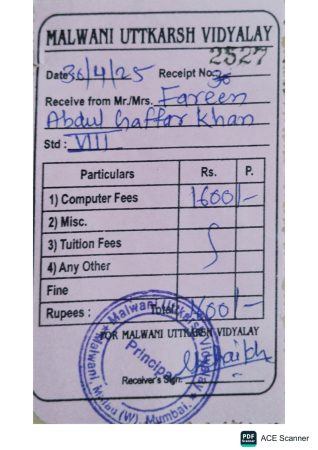 MALWANI UTTKARSH VIDYALAY
2527
Date: 30/4/25 Receipt No. 30
Receive from Mr./Mrs. Fareen
Abdul Gaffar Khan
Std : VIII
Particulars Rs. P.
1) Computer Fees 1600/-
2) Misc.
3) Tuition Fees
4) Any Other
Fine
Rupees : Total 1600/-
FOR MALWANI UTTKARSH VIDYALAY
Receiver's Sign.
Malwani Uttkarsh Vidyalay
Principal
Malwani, Malad (W), Mumbai.
PDF Scanner ACE Scanner